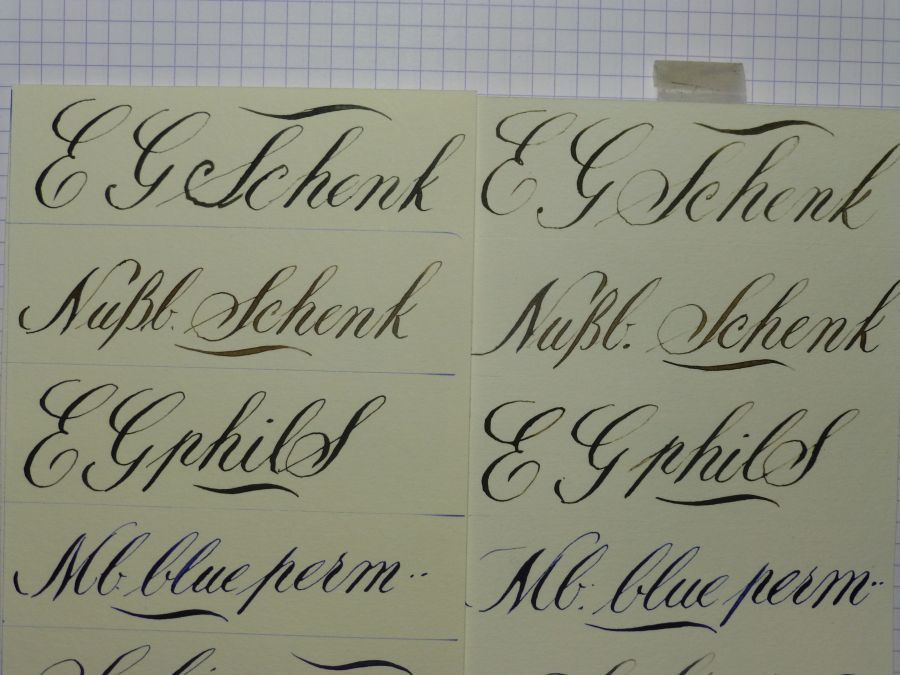 E G Schenk
Nußb. Schenk
E G philS
Mb. blue perm..
E G Schenk
Nußb. Schenk
E G philS
Mb. blue perm..